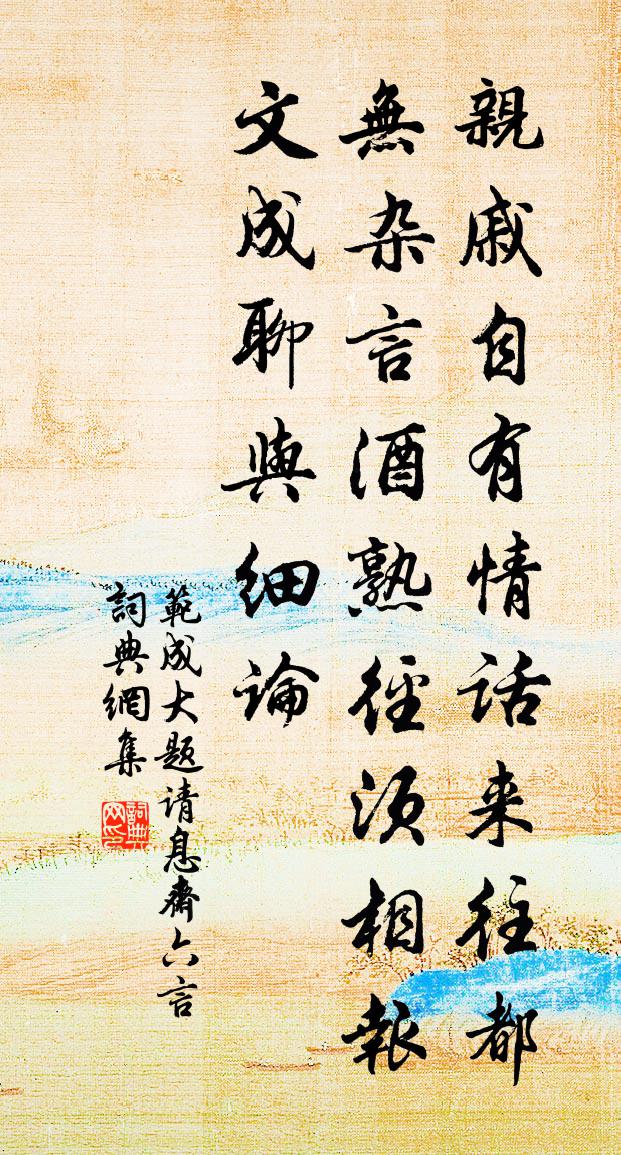 親戚自有情話来往都
無杂言酒熟徑須相報
文成聊與细論
範成大题请息齋六言
詞典網集
詞典网印